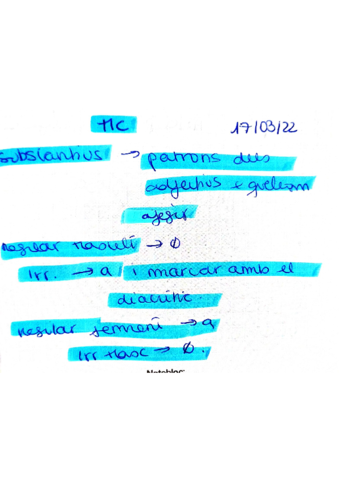 TIC 17/03/22
Substantius → patrons dels
adjectius e
afegir
Regular masculí → Ø
Irr. → a i marcar amb el
diacrític
Regular femení → a
Irr masc → Ø.
Notebloc